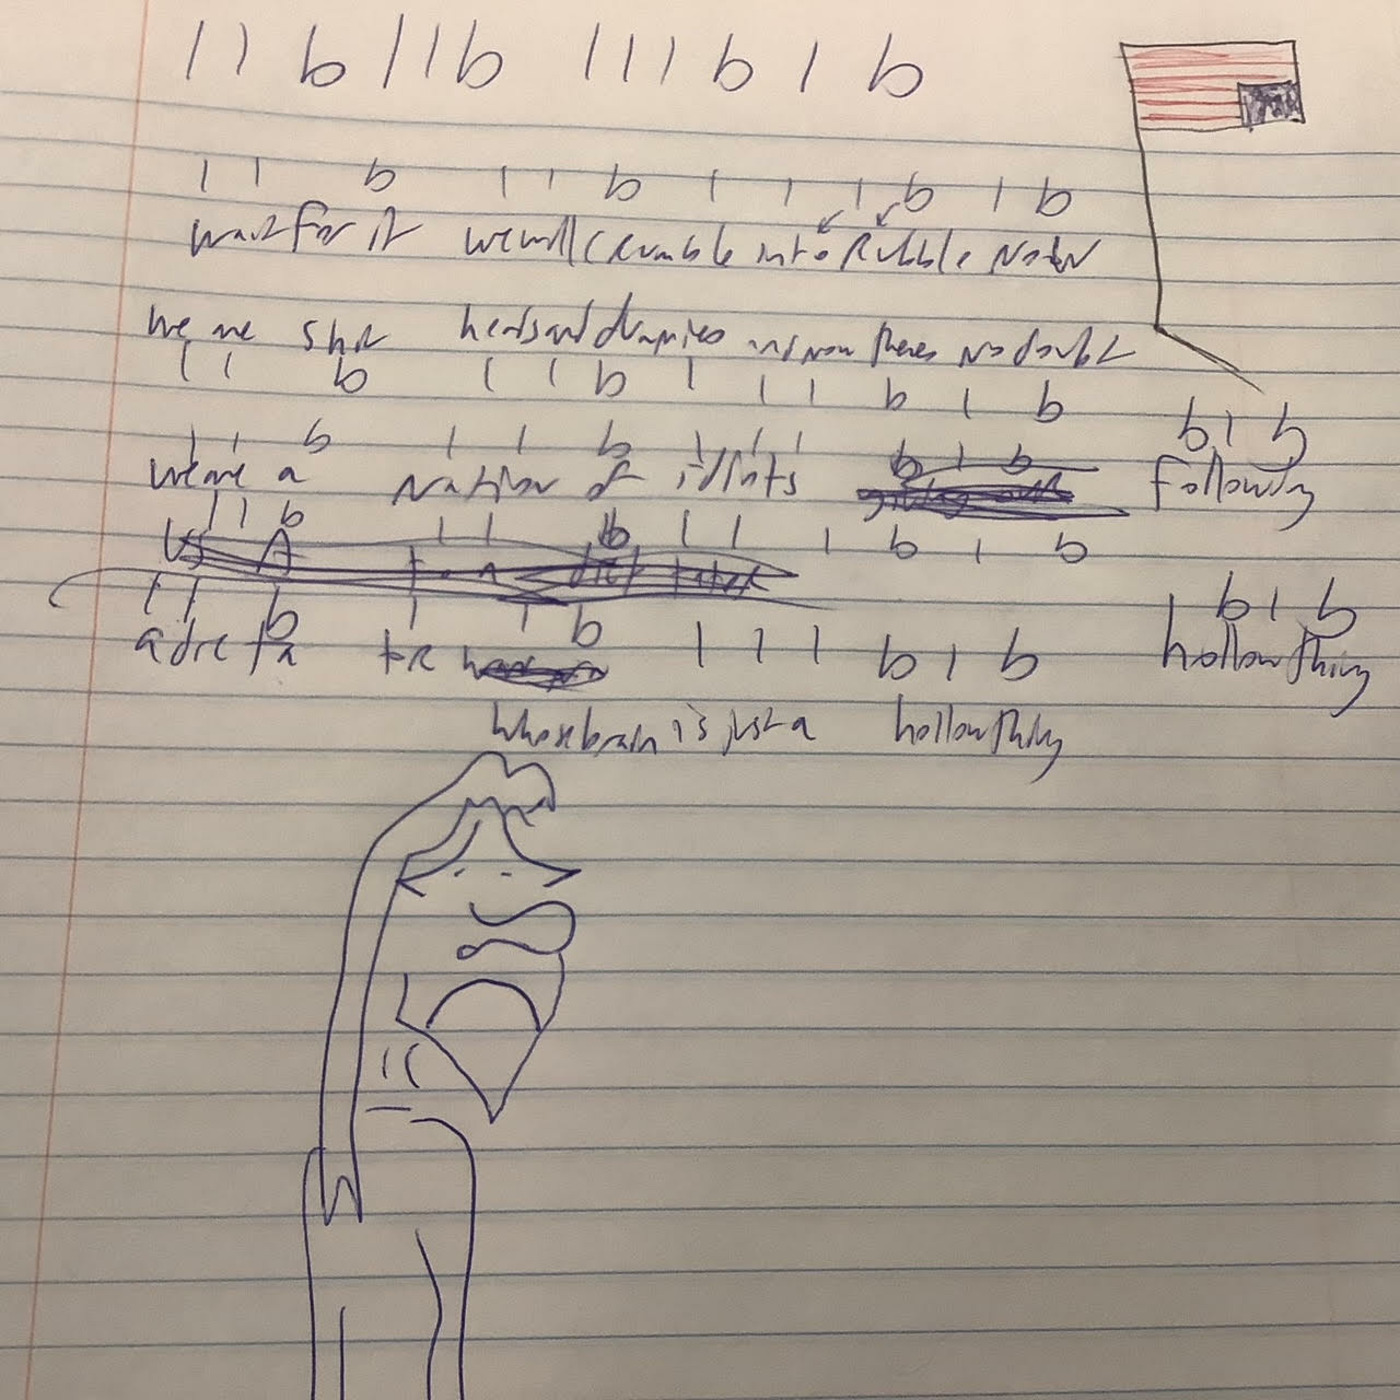 1 1 b 1 1 b 1 1 1 b 1 b
1 1 b 1 1 b 1 1 1 b 1 b
wait for it we will crumble into Rubble Now
We are Shit heads and dummies and now theres no doubt
1 1 b 1 1 b 1 1 1 b 1 b
1 1 b 1 1 b 1 1 1 b 1 b b 1 b
we are a Nation of idiots following
1 1 b 1 1 b 1 1 1 b 1 b
US A
1 1 b 1 1 b 1 1 1 b 1 b 1 b 1 b
a dic ta tR hollow thing
whose brain is just a hollow thing